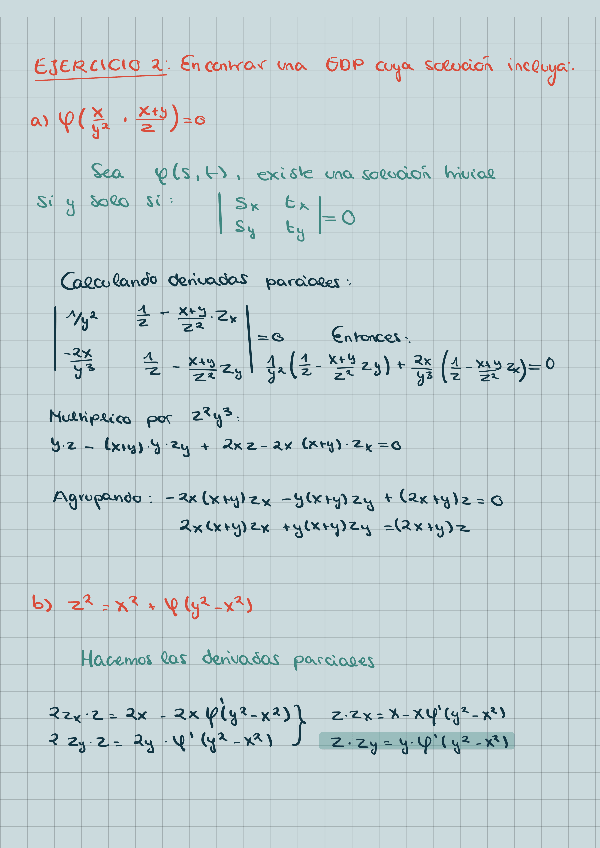 EJERCICIO 2: Encontrar una EDP cuya solución incluya:
a) φ(x/y² , x+y/z) = 0
Sea φ(s,t), existe una solución trivial
si y solo si: | Sx tx ; Sy ty | = 0
Calculando derivadas parciales:
| 1/y² 1/z - x+y/z² · Zx ; -2x/y³ 1/z - x+y/z² Zy | = 0 Entonces:
1/y² (1/z - x+y/z² Zy) + 2x/y³ (1/z - x+y/z² Zx) = 0
Multiplico por z²y³:
y·z - (x+y)·y·Zy + 2xz - 2x (x+y)·Zx = 0
Agrupando: -2x(x+y)Zx - y(x+y)Zy + (2x+y)z = 0
2x(x+y)Zx + y(x+y)Zy = (2x+y)z
b) z² = x² + φ(y²-x²)
Hacemos las derivadas parciales
2Zx·z = 2x - 2x φ'(y²-x²) } z·Zx = x - xφ'(y²-x²)
2 Zy·z = 2y · φ'(y²-x²) } z·Zy = y·φ'(y²-x²)